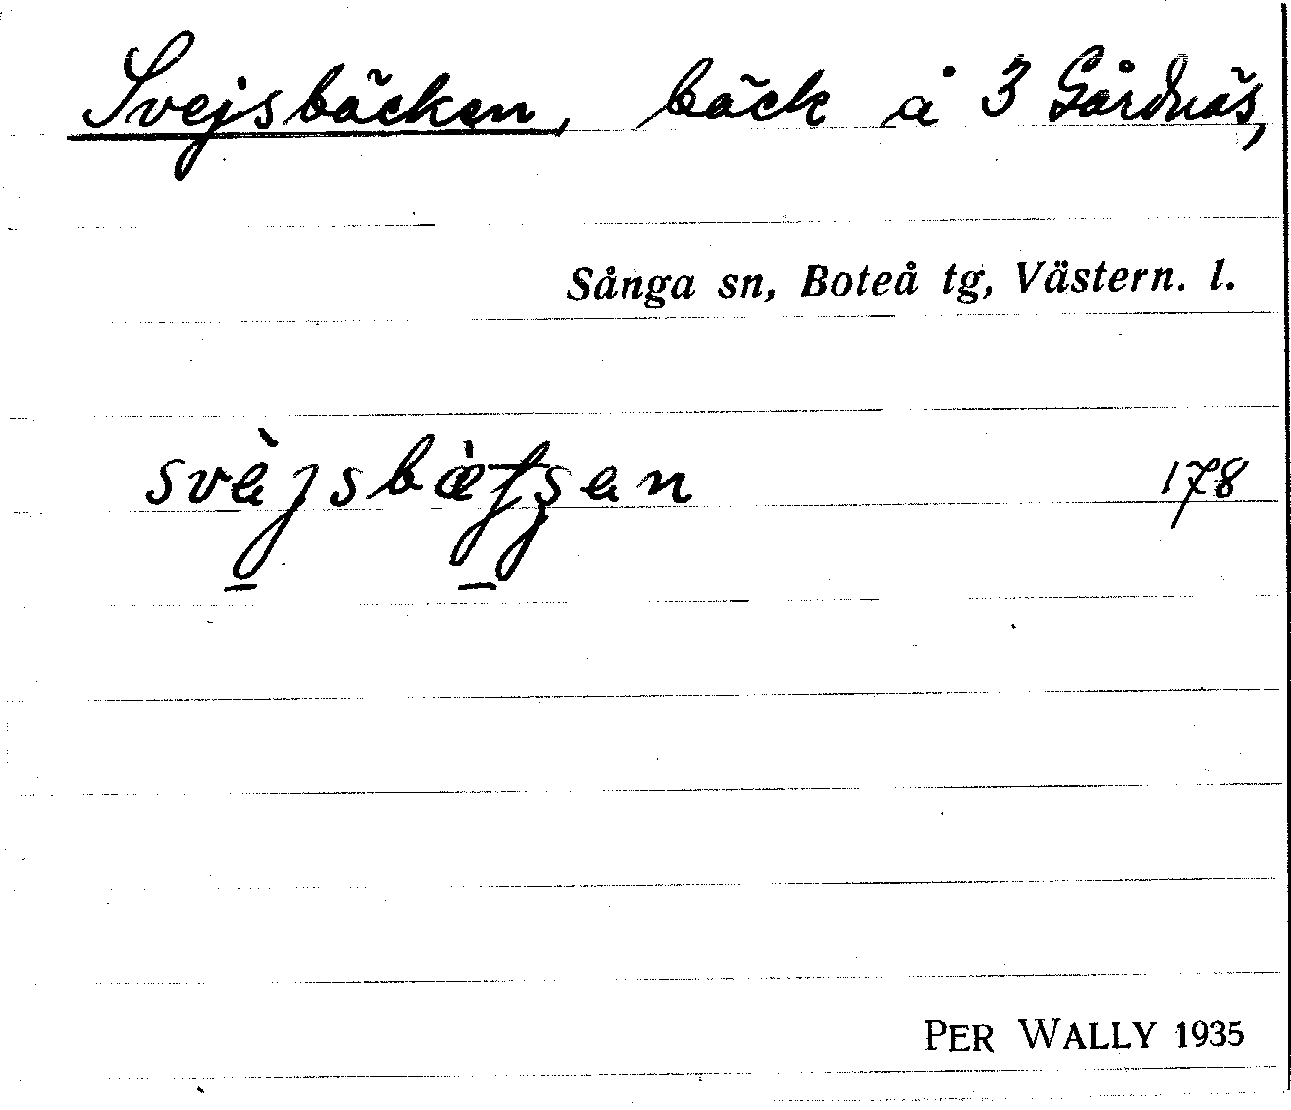 Svejsbäcken, bäck å 3 Gårdnäs,
Sånga sn, Boteå tg, Västern. l.
178
PER WALLY 1935